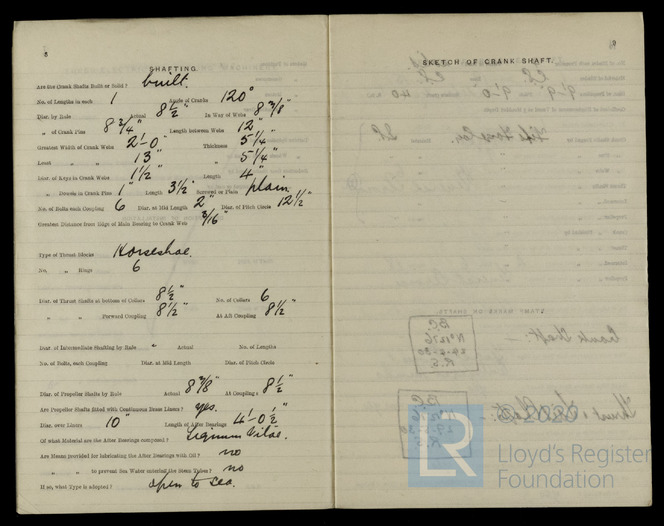 8
SHAFTING.
Are the Crank Shafts Built or Solid? built.
No. of Lengths in each 1 Angle of Cranks 120°
Diar. by Rule Actual 8 1/2" In Way of Webs 8 7/8"
" of Crank Pins 8 3/4" Length between Webs 12"
Greatest Width of Crank Webs 2'-0" Thickness 5 1/4"
Least " " 13" " 5 1/4"
Diar. of Keys in Crank Webs 1 1/2" Length 4"
" Dowels in Crank Pins 1" Length 3 1/2" Screwed or Plain plain.
No. of Bolts each Coupling 6 Diar. at Mid Length 2" Diar. of Pitch Circle 12 1/2"
Greatest Distance from Edge of Main Bearing to Crank Web 3/16"
Type of Thrust Blocks Horseshoe.
No. " Rings 6
Diar. of Thrust Shafts at bottom of Collars 8 1/2" No. of Collars 6
" " Forward Coupling 8 1/2" At Aft Coupling 8 1/2"
Diar. of Intermediate Shafting by Rule Actual No. of Lengths
No. of Bolts, each Coupling Diar. at Mid Length Diar. of Pitch Circle
Diar. of Propeller Shafts by Rule Actual 8 7/8" At Couplings 8 1/2"
Are Propeller Shafts fitted with Continuous Brass Liners? yes.
Diar. over Liners 10" Length of After Bearings 4'-0 1/2"
Of what Material are the After Bearings composed? Lignum Vitae.
Are Means provided for lubricating the After Bearings with Oil? no
" " to prevent Sea Water entering the Stern Tubes? no
If so, what Type is adopted? open to sea.
SKETCH OF CRANK SHAFT.
LR
Lloyd's Register
Foundation